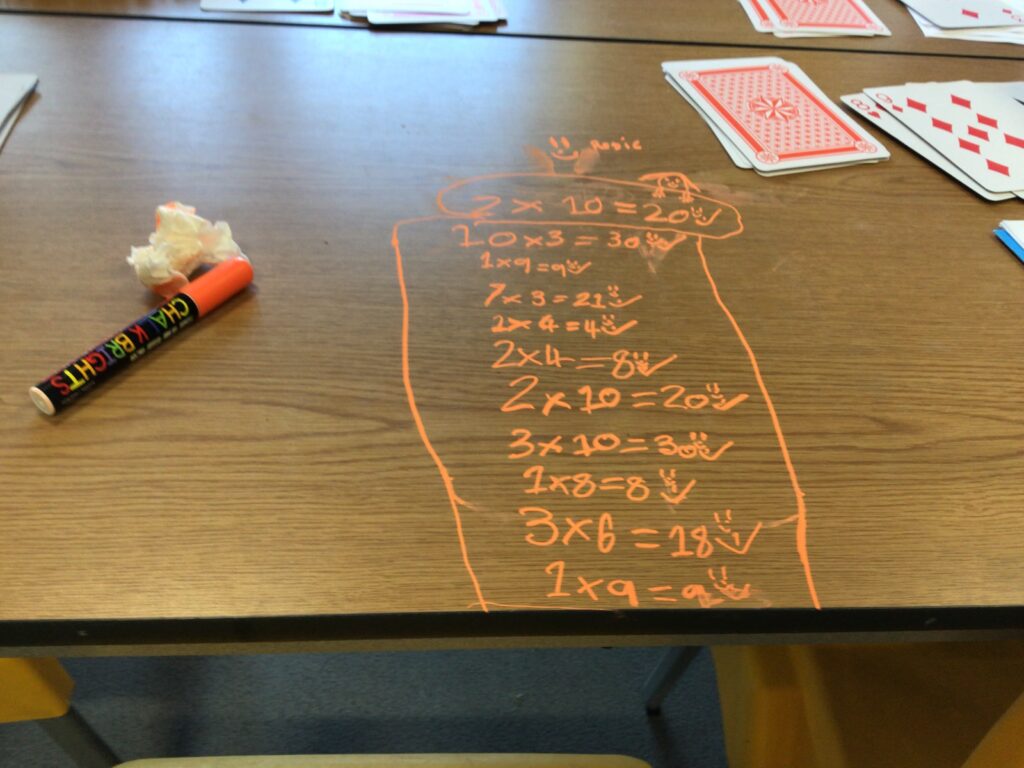 2 x 10 = 20
10 x 3 = 30
1 x 9 = 9
7 x 3 = 21
1 x 4 = 4
2 x 4 = 8
2 x 10 = 20
3 x 10 = 30
1 x 8 = 8
3 x 6 = 18
1 x 9 = 9
CHALK BRIGHTS
8
9